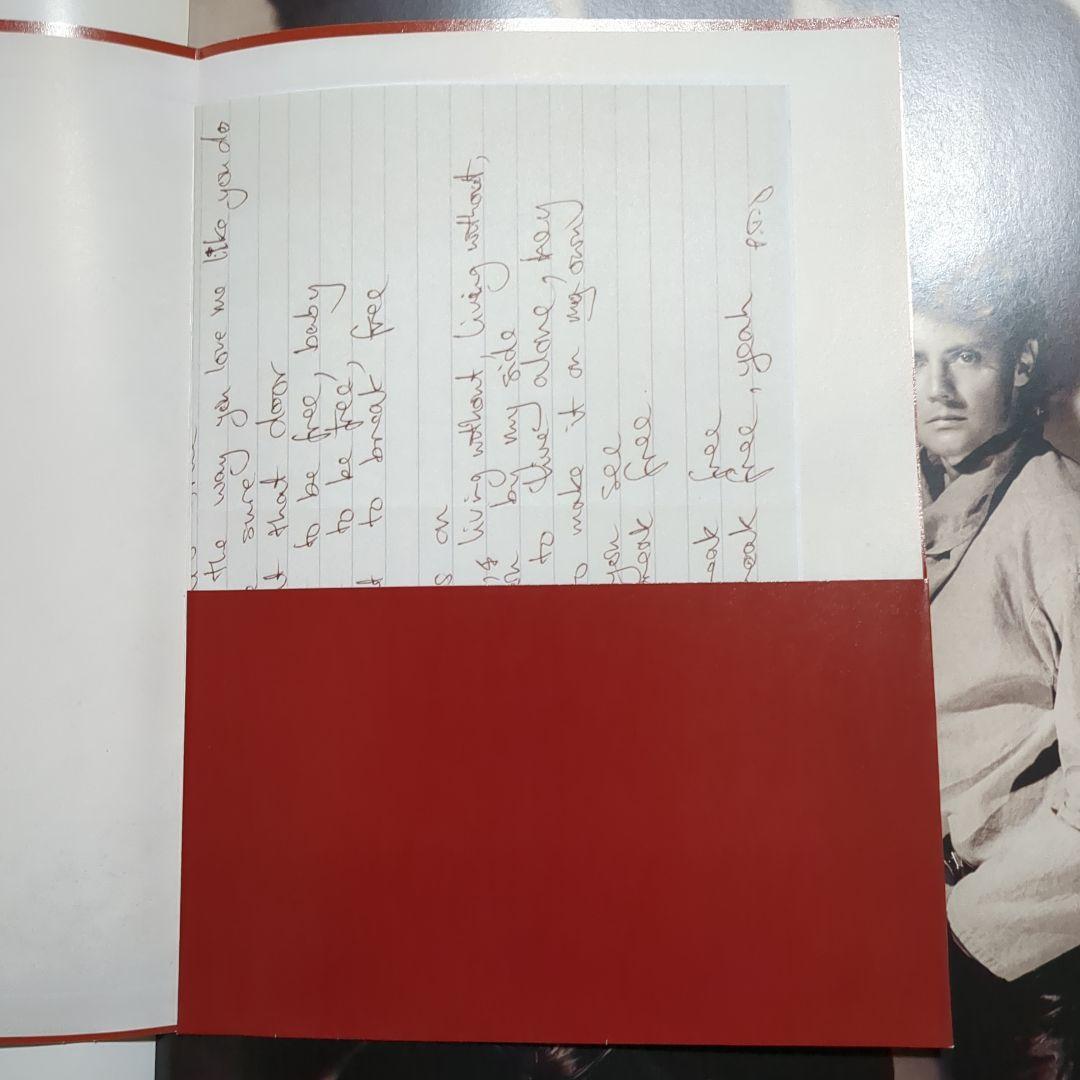 the way you love me like you do
surey
t that door
to be free, baby
to be free,
t to break free
s on
living without living without living without,
by my side
to live alone, hey
o make it on my own
you see
reak free.
eak free
reak free, yeah